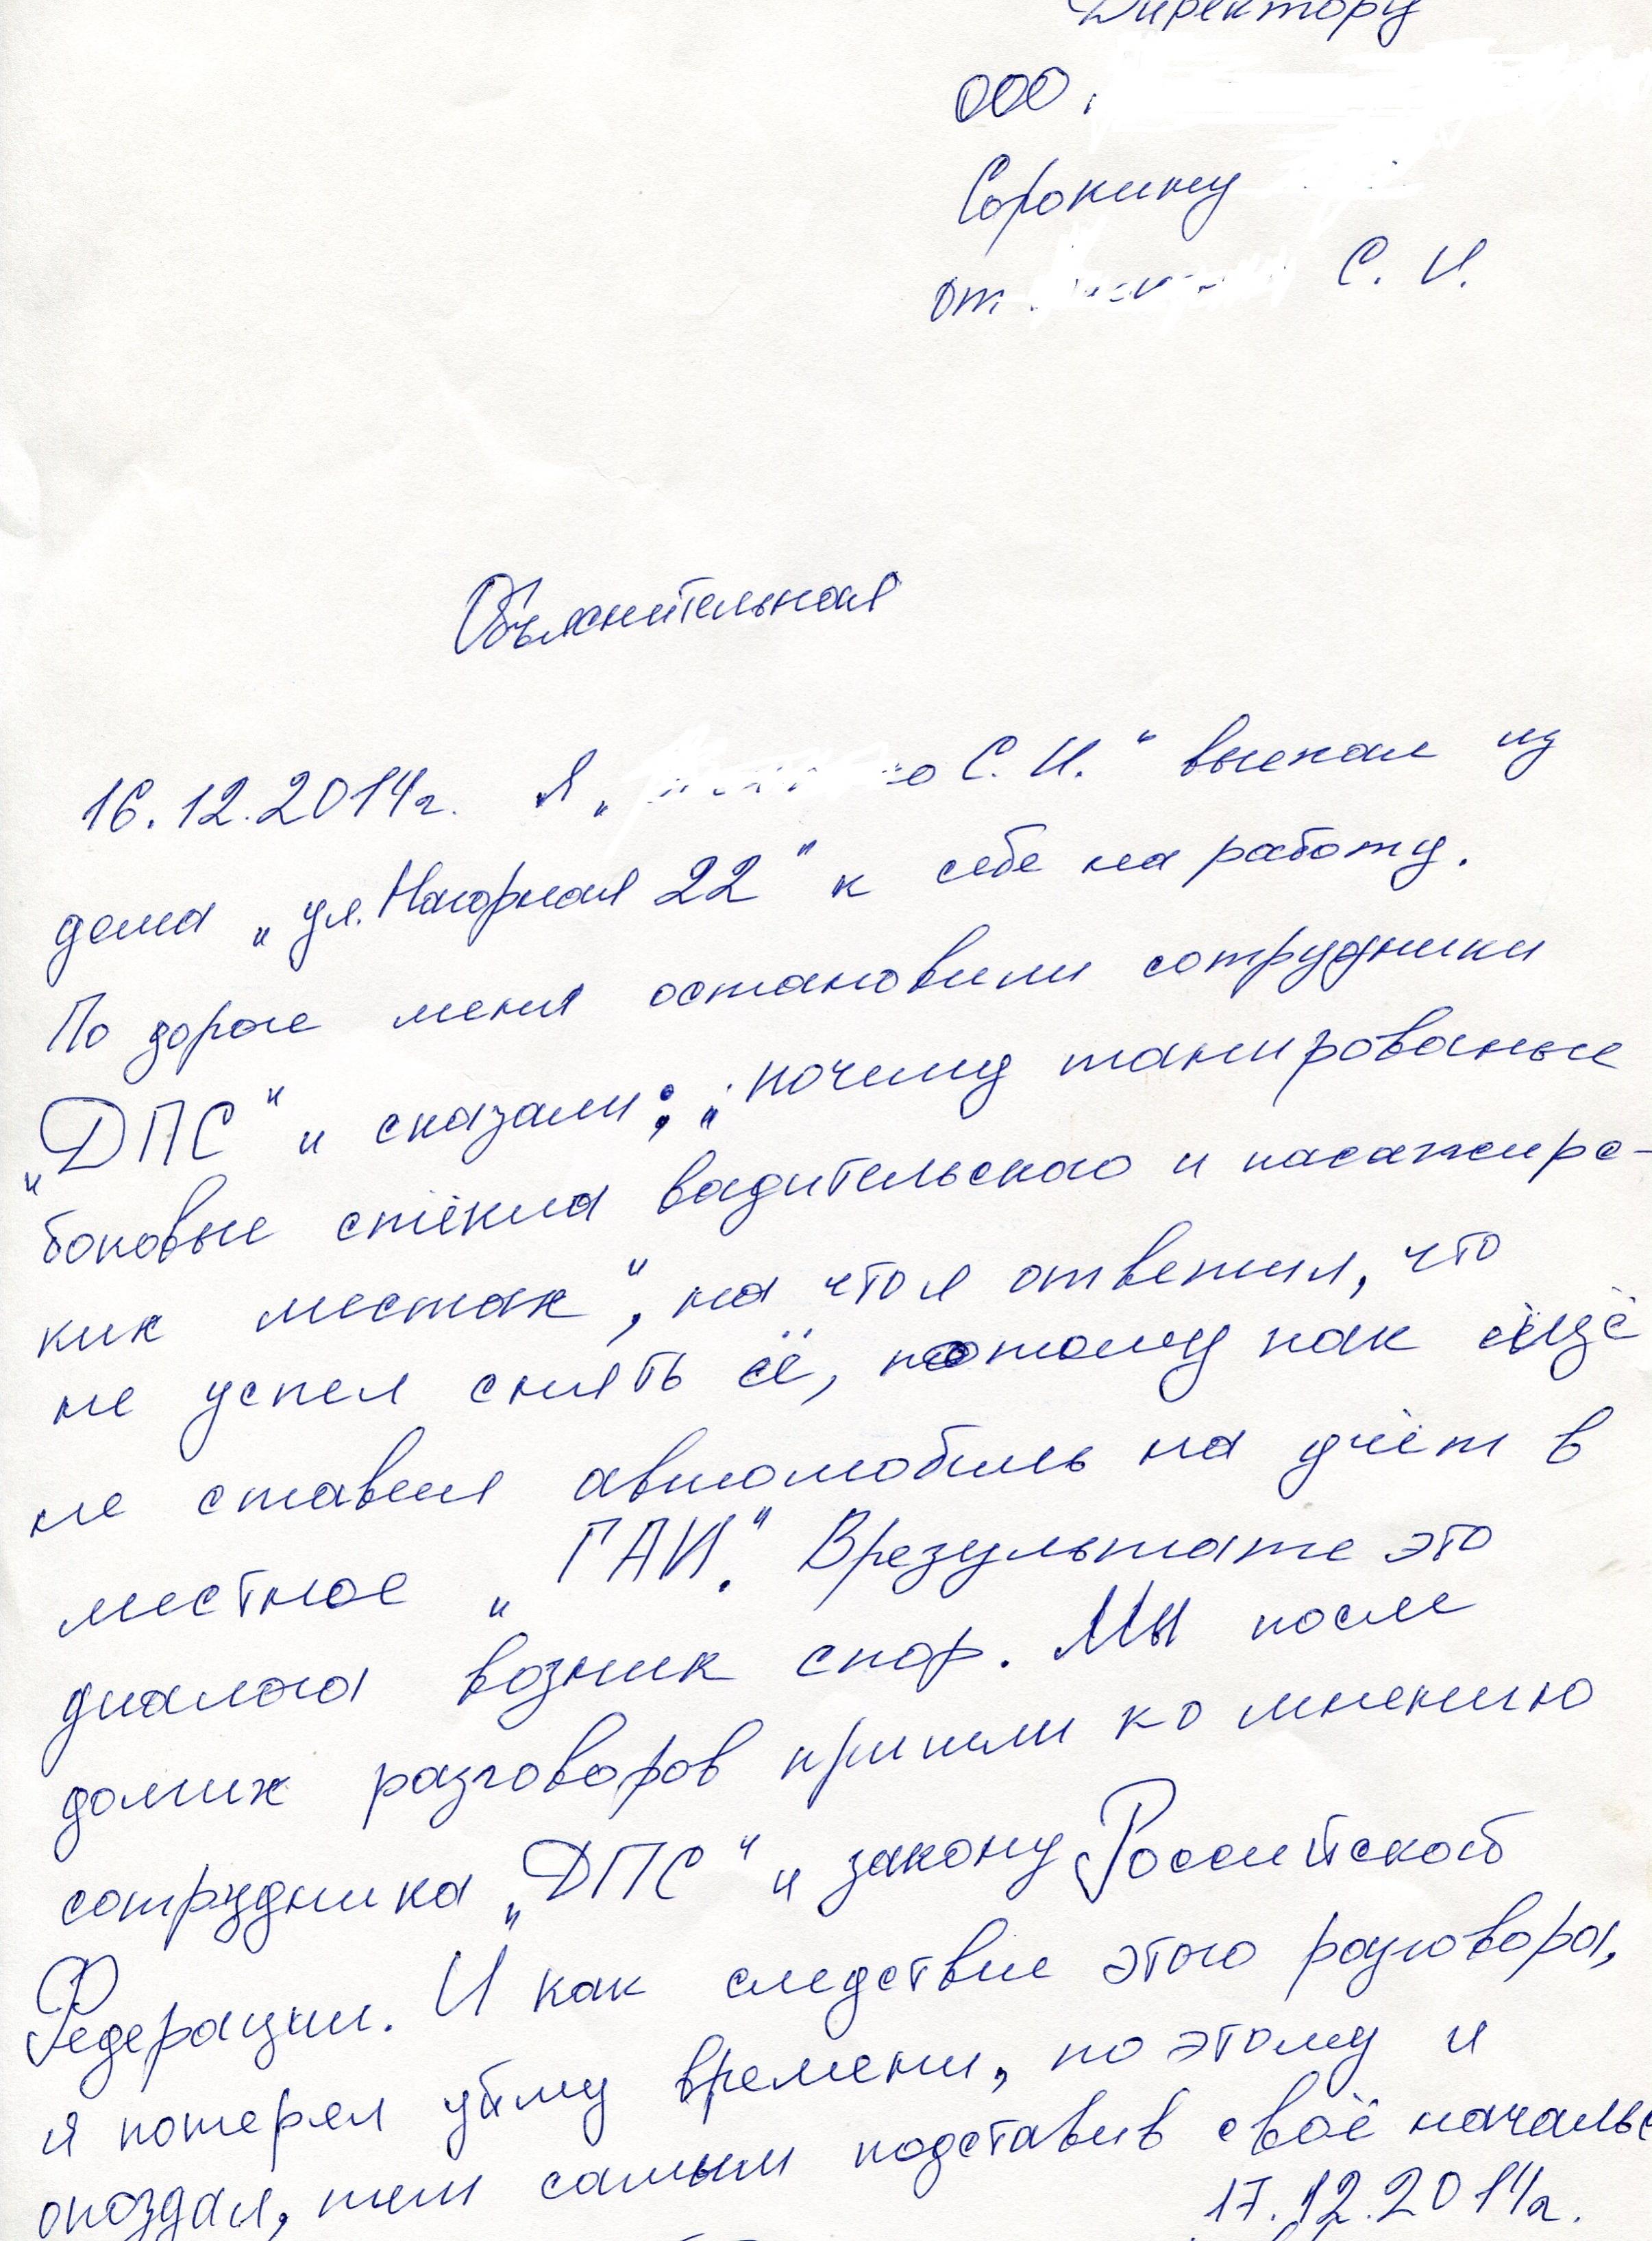 Директору
ООО
Сорокину
от С. И.
Объяснительная
16.12.2014г. Я „ о С. И.“ выехал из
дома „ул. Нагорная 22“ к себе на работу.
По дороге меня остановили сотрудники
„ДПС“ и сказали: „почему танированые
боковые стёкла вадительского и пасажирс-
ких местах“, на что я ответил, что
не успел снять её, потому как ёщё
не ставил автомобиль на учёт в
местное „ГАИ“. Врезультате это
диалога возник спор. Мы после
долгих разговоров пришли ко мнению
сотрудника „ДПС“ и закону Российской
Федерации. И как следствие этого разговора,
я потерял уйму времени, по этому и
опоздал, тем самым подставив своё начальс
17.12.2014г.